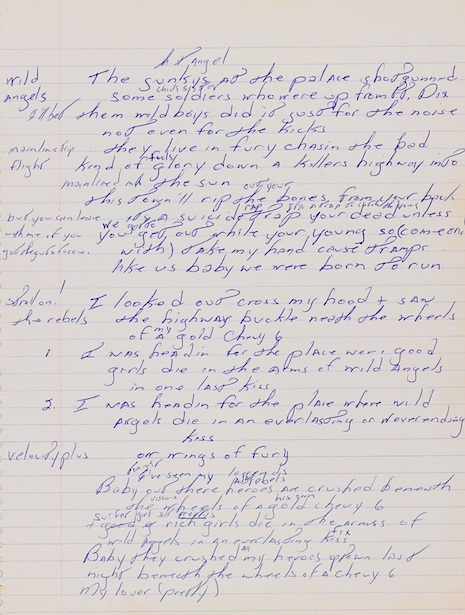 hot Angel
wild The junkys at the palace shotgunned
chick's sister
Angels some soldiers who were up from Ft. Dix
I'll bet them wild boys did it just for the noise
not even for the kicks
mainline trip they live in fury chasin the bad
flight kind of glory down a killers highway into
mainlined the sun out your
this town'll rip the bones from your back
but you can leave its a suicide trap your dead unless
rap
with me if you we gotta
you get out while your young so (come on
you got requirements
with) take my hand cause tramps
like us baby we were born to run
stroll on! I looked out cross my hood + saw
the rebels the highway buckle neath the wheels
my
of a gold Chevy 6
1. I was headin for the place were good
girls die in the arms of wild Angels
in one last kiss
2. I was headin for the place where wild
Angels die in an everlasting or neverending
kiss
velouty plus on wings of fury
tonight I've seen my legends
rebels
Baby out there heroes are crushed beneath
his own
the wheels of a gold chevy 6
surfer girl
+ good + rich girls die in the arms of
wild Angels in an everlasting kiss
fix
Baby they crushed my heroes upown last
night beneath the wheels of a chevy 6
my lover (pretty)